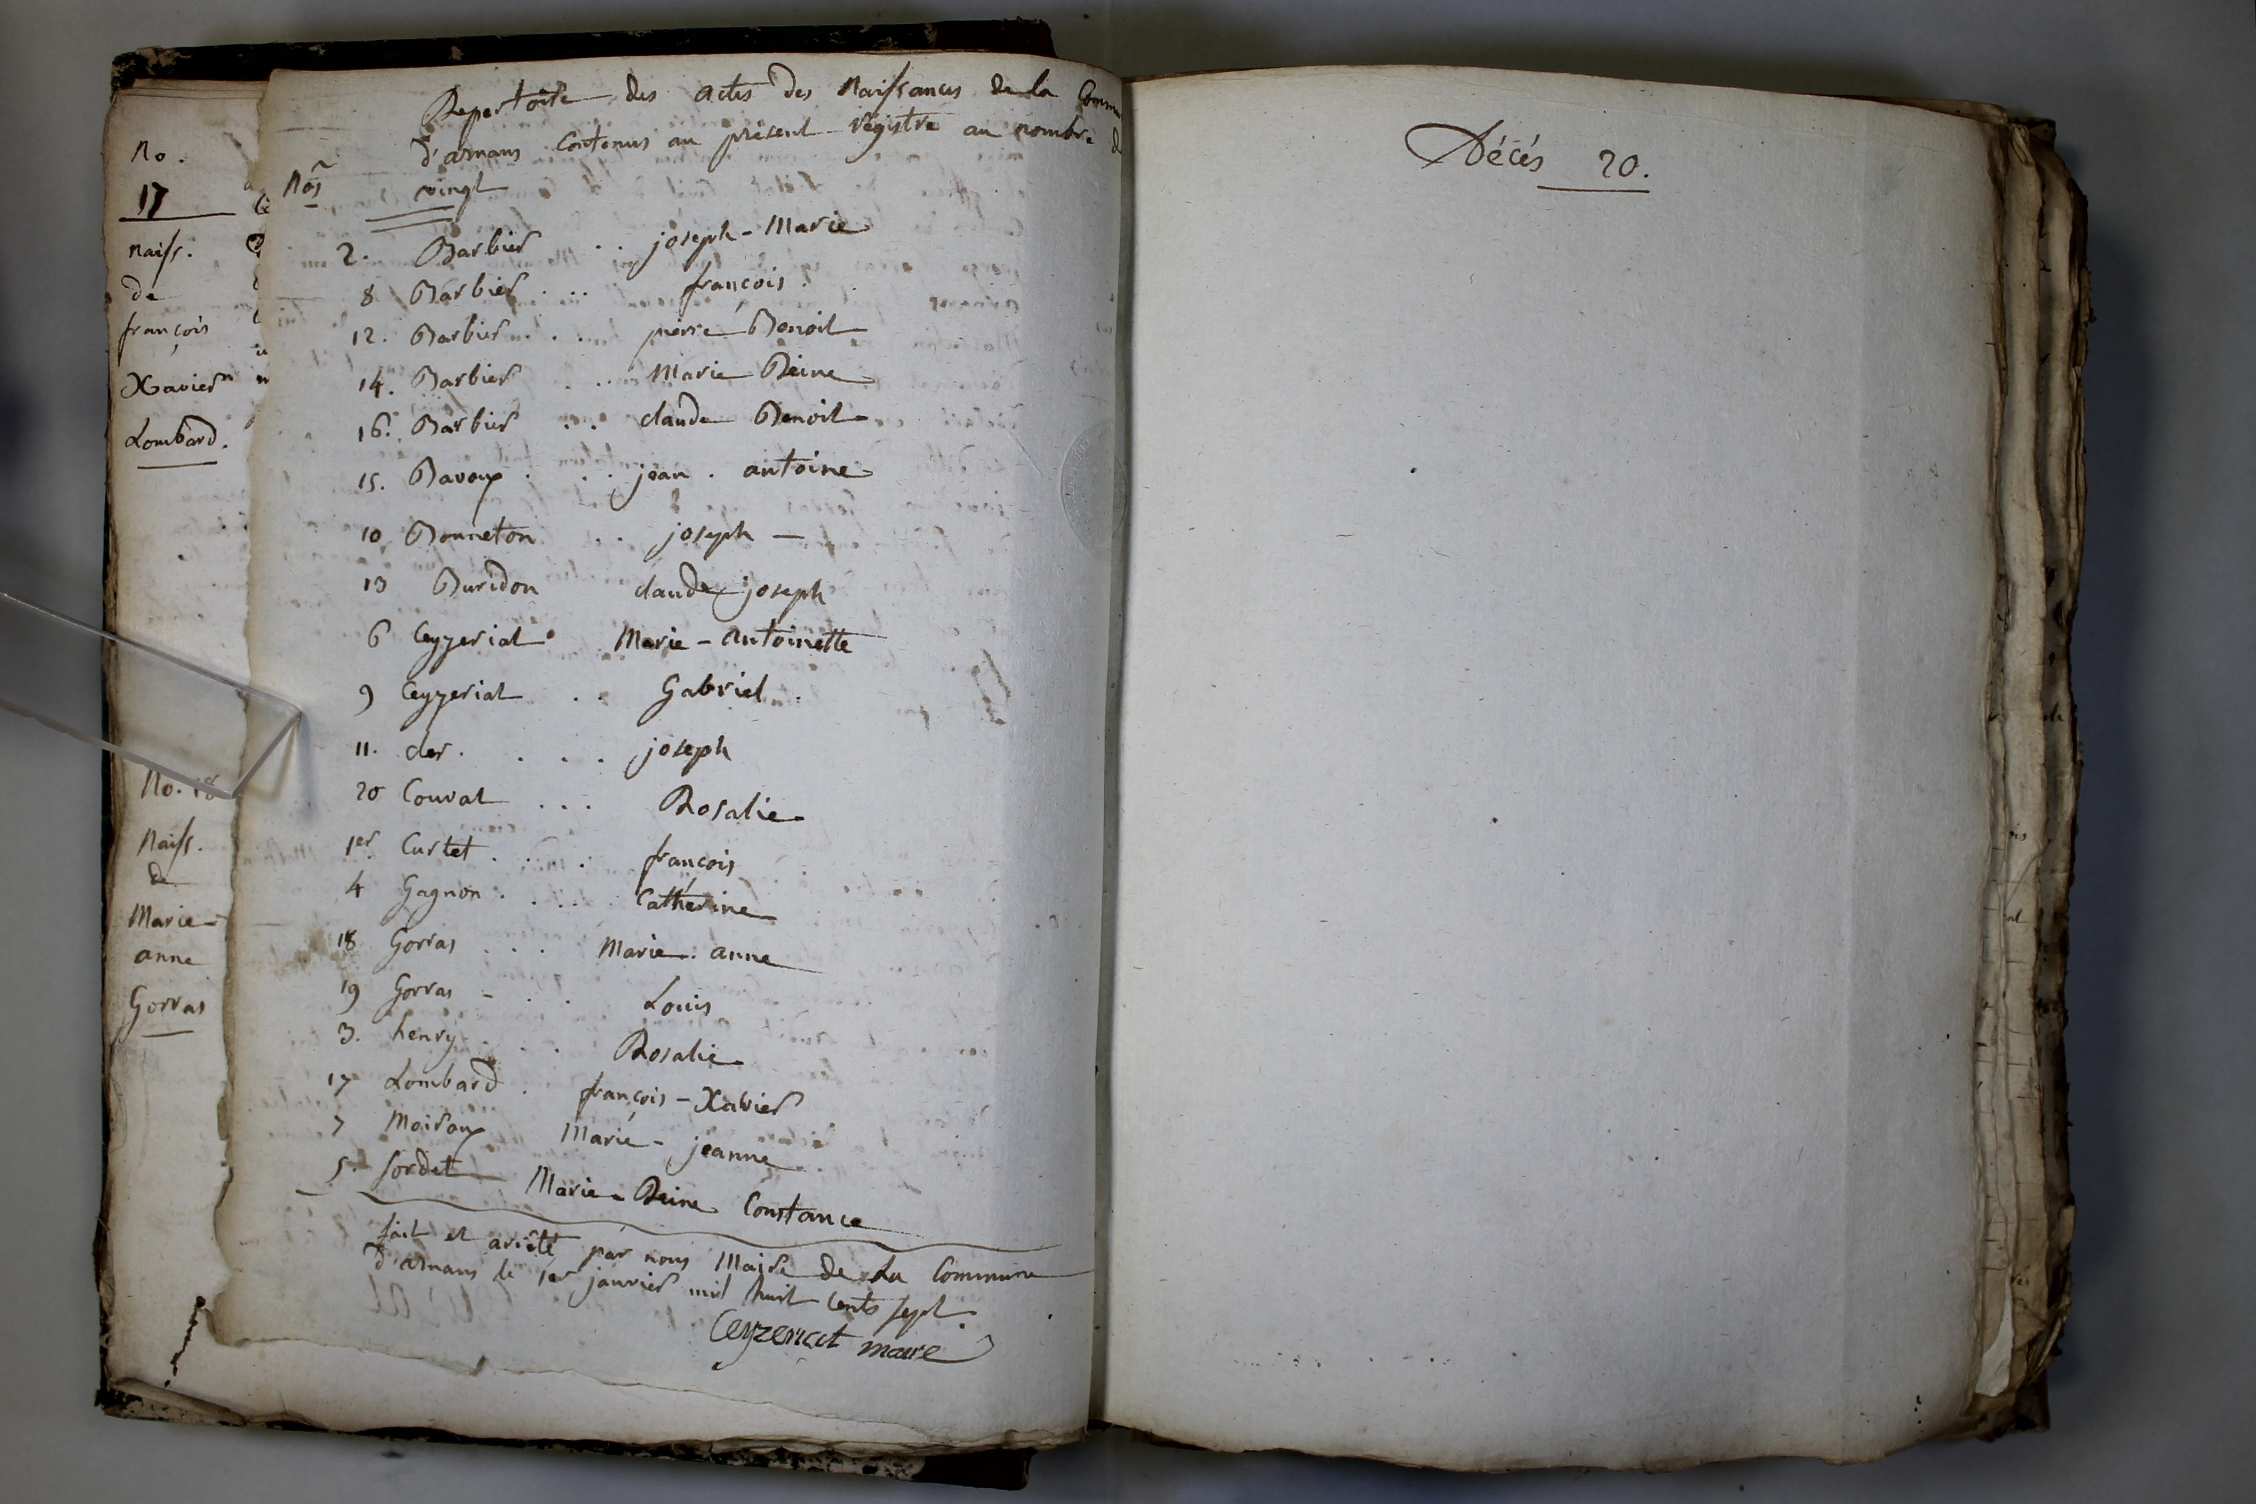 No.
17
naiss.
de
françois
Xavier
Lombard.
No. 18
Naiss.
de
Marie-
anne
Gorras
Repertoire des actes des Naissances de la Comm
d'arnans Contenus au présent régistre au nombre d
Nos vingt
2. Barbier .. joseph-Marie
8 Barbier ... françois.
12. Barbier ... pierre Benoit
14. Barbier ... Marie Reine
16. Barbier ... claude Benoit
15. Bavoux ... jean. antoine
10 Bonneton .. joseph -
13 Buridon claude joseph
6 Ceyzeriat Marie-antoinette
9 Ceyzeriat .. Gabriel.
11. cler. ... joseph
20 Couvat ... Rosalie
1er Curtet ... françois
4 Gagnon .... Cathérine
18 Gorras ... Marie. anne
19 Gorras - .. Louis
3. henry ... Rosalie
17 Lombard . françois-Xavier
7 Moiroux Marie-jeanne
5. Sordet Marie-Reine Constance
fait et arrêté par nous Maire de La Commune
d'arnans le 1er janvier mil huit cents sept.
Ceyzeriat maire
Décés 20.